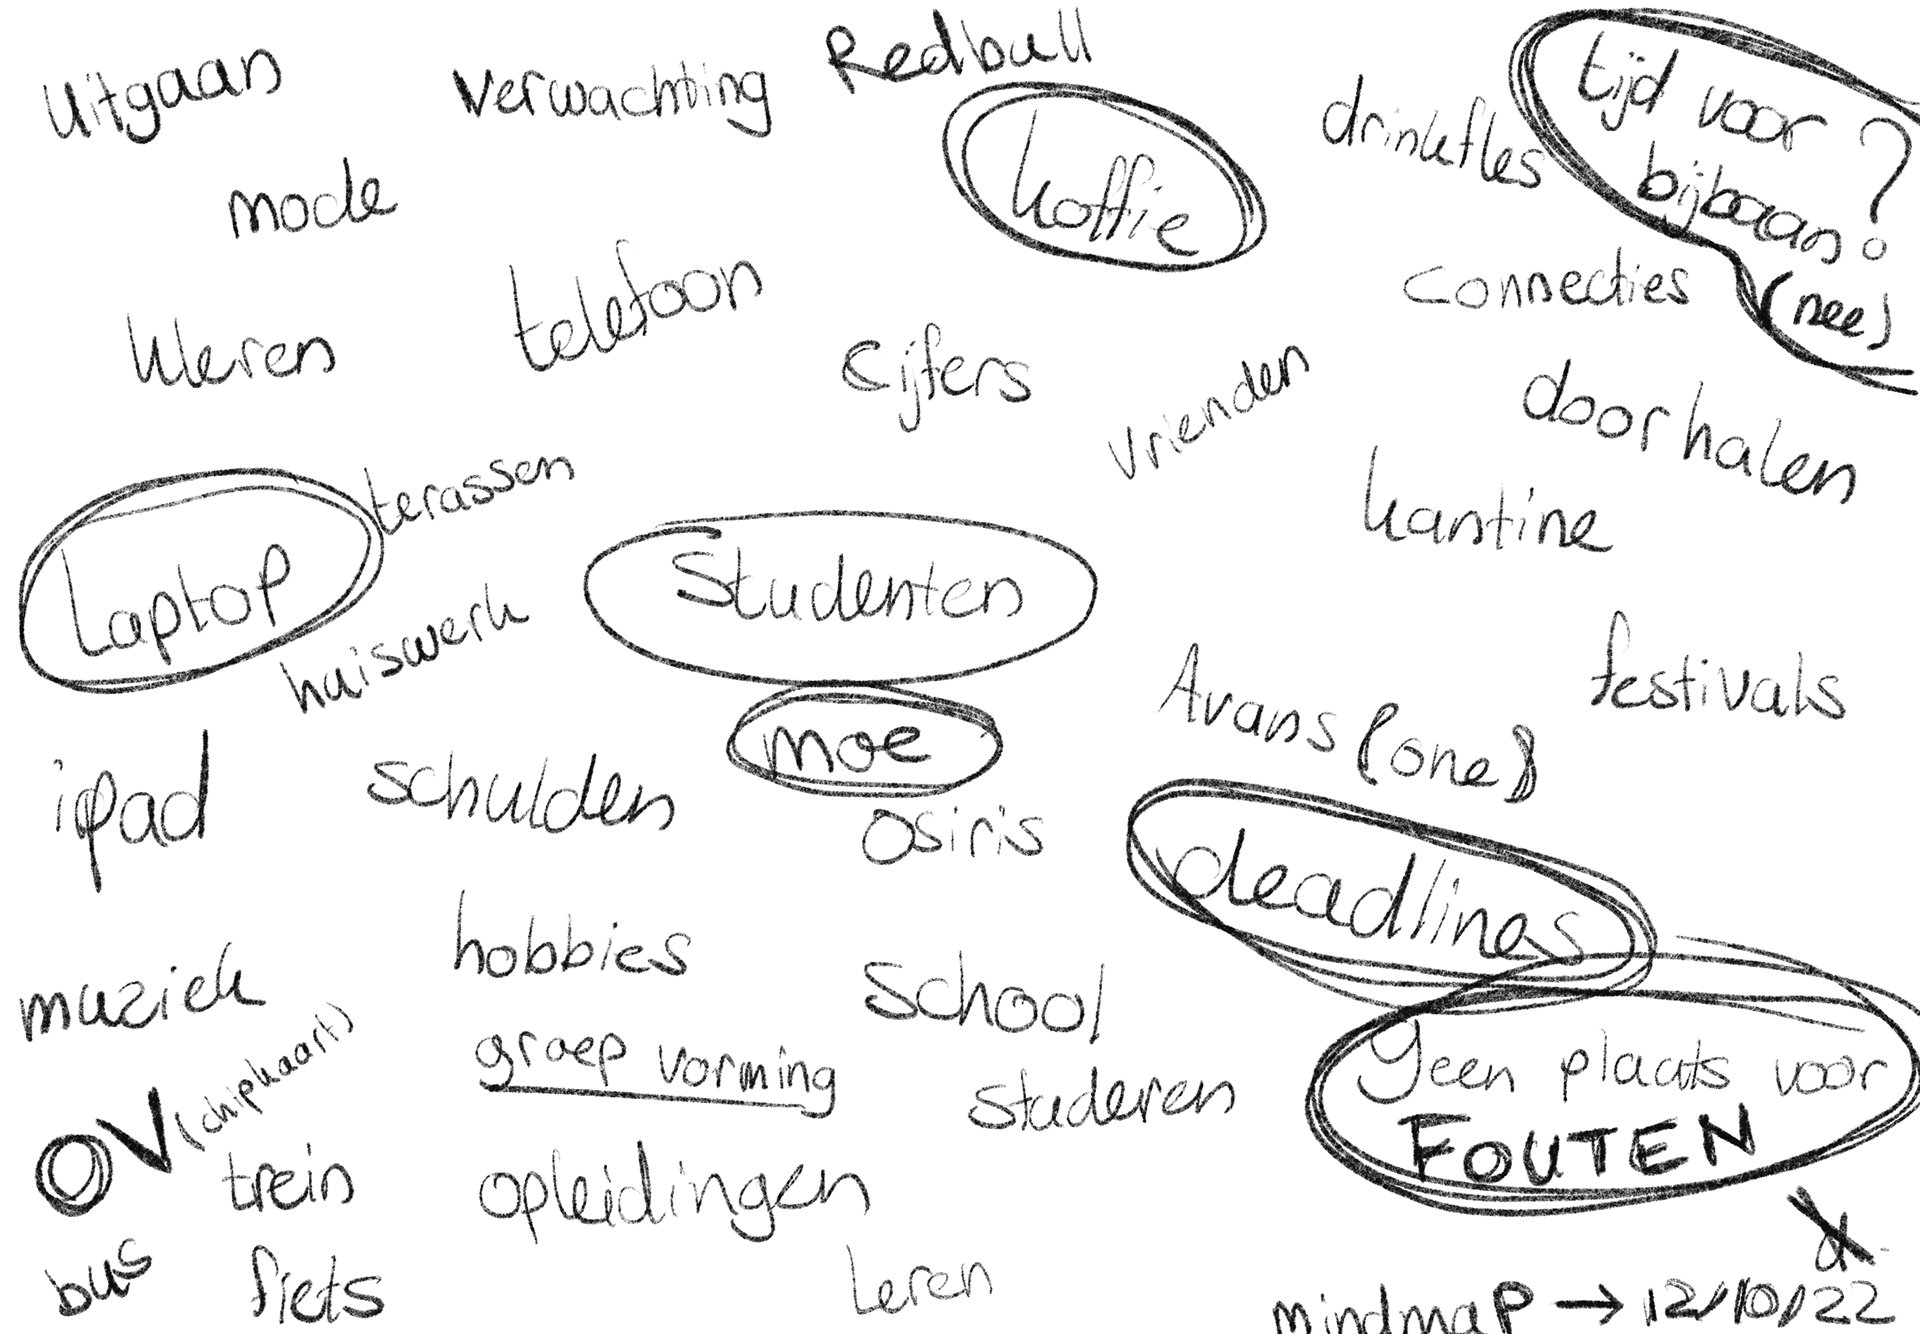 Uitgaan
verwachting
Redbull
mode
koffie
drinkfles
tijd voor
bijbaan?
(nee)
kleren
telefoon
cijfers
connecties
vrienden
doorhalen
terassen
kantine
Laptop
Studenten
huiswerk
moe
Avans (one)
festivals
ipad
schulden
osiris
deadlines
muziek
hobbies
School
geen plaats voor
FOUTEN
OV (chipkaart)
groep vorming
studeren
trein
opleidingen
bus
fiets
Leren
mindmap → 12/10/22